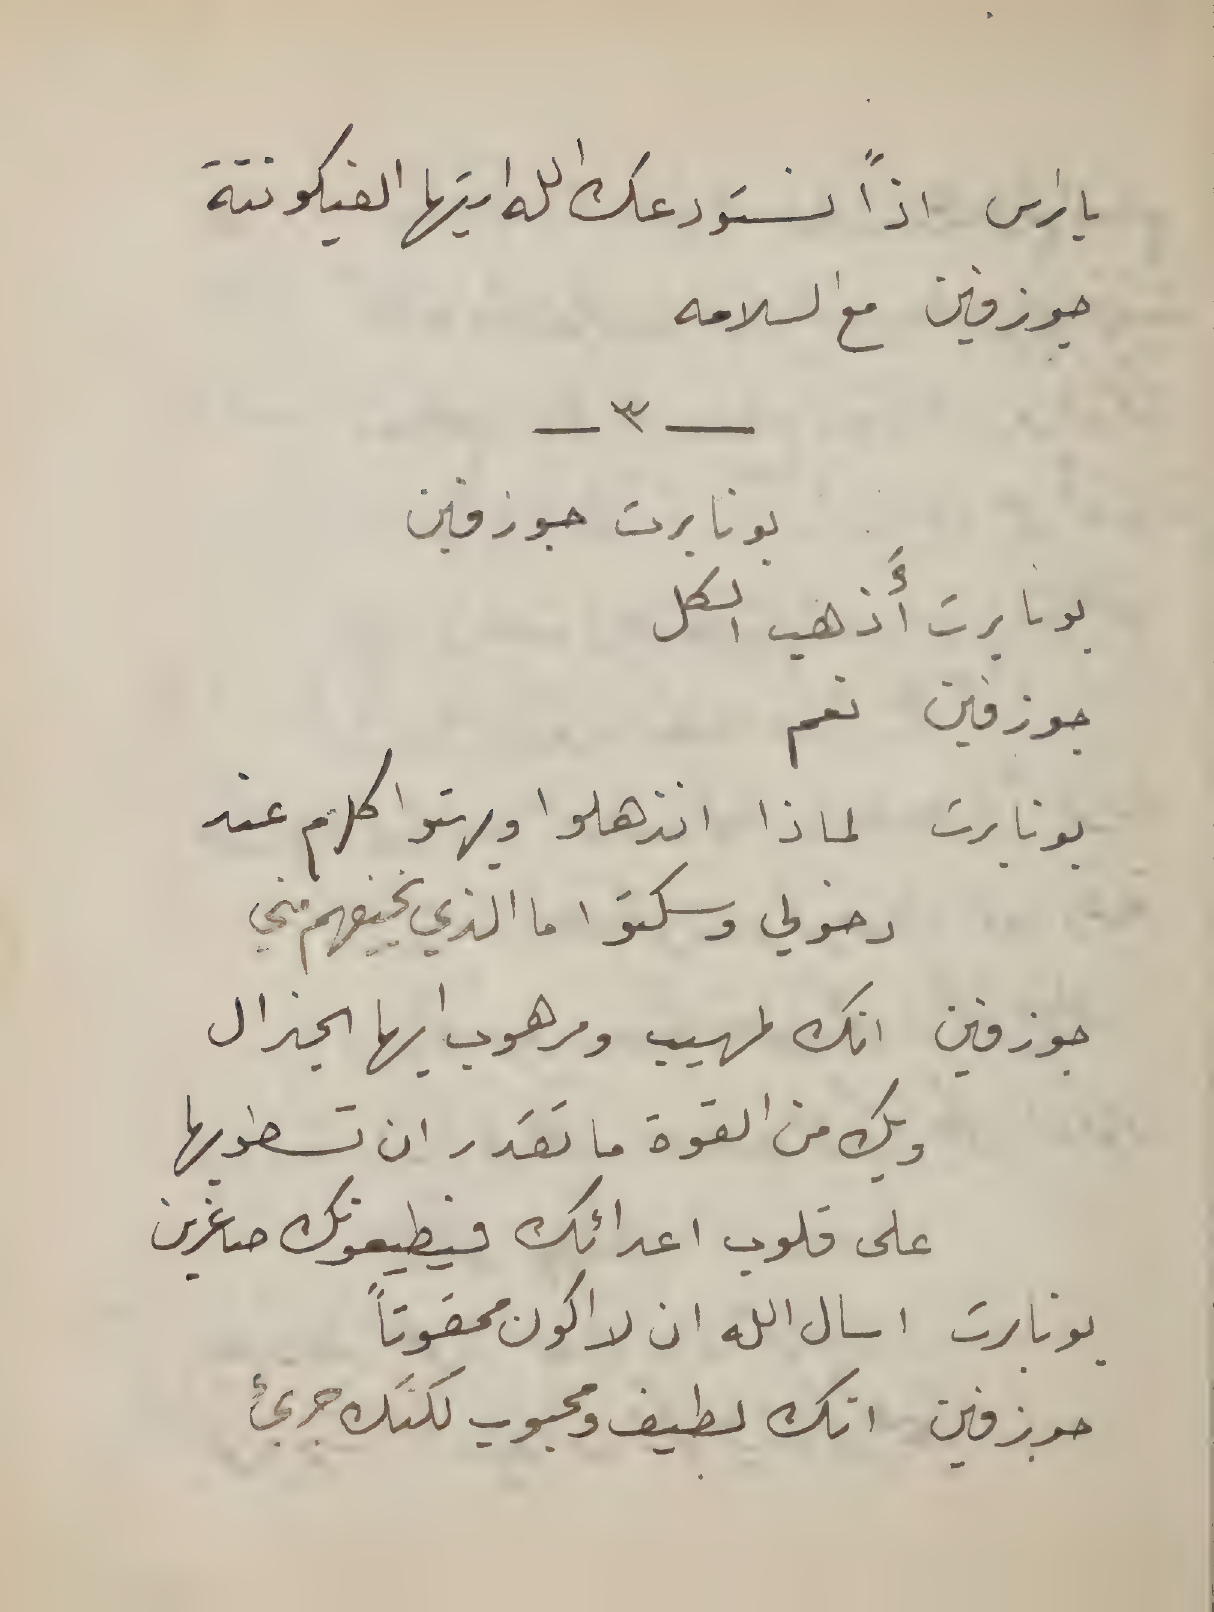 باراس اذاً نستودعك الله ايتها الفيكونتة
جوزفين مع السلامه
— ٣ —
بونابرت جوزفين
بونابرت أَذهب الكل
جوزفين نعم
بونابرت لماذا انذهلوا وبهتوا كلهم عند
دخولي وسكتوا ما الذي يخيفهم مني
جوزفين انك لمهيب ومرهوب ايها الجنرال
وبك من القوة ما تقدر ان تسطو بها
على قلوب اعدائك فيطيعونك صاغرين
بونابرت اسال الله ان لا اكون ممقوتاً
جوزفين انك لطيف ومحبوب لكنك جريئ